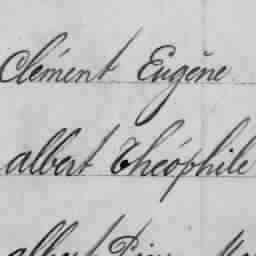 Clément Eugène
albert Théophile
albert